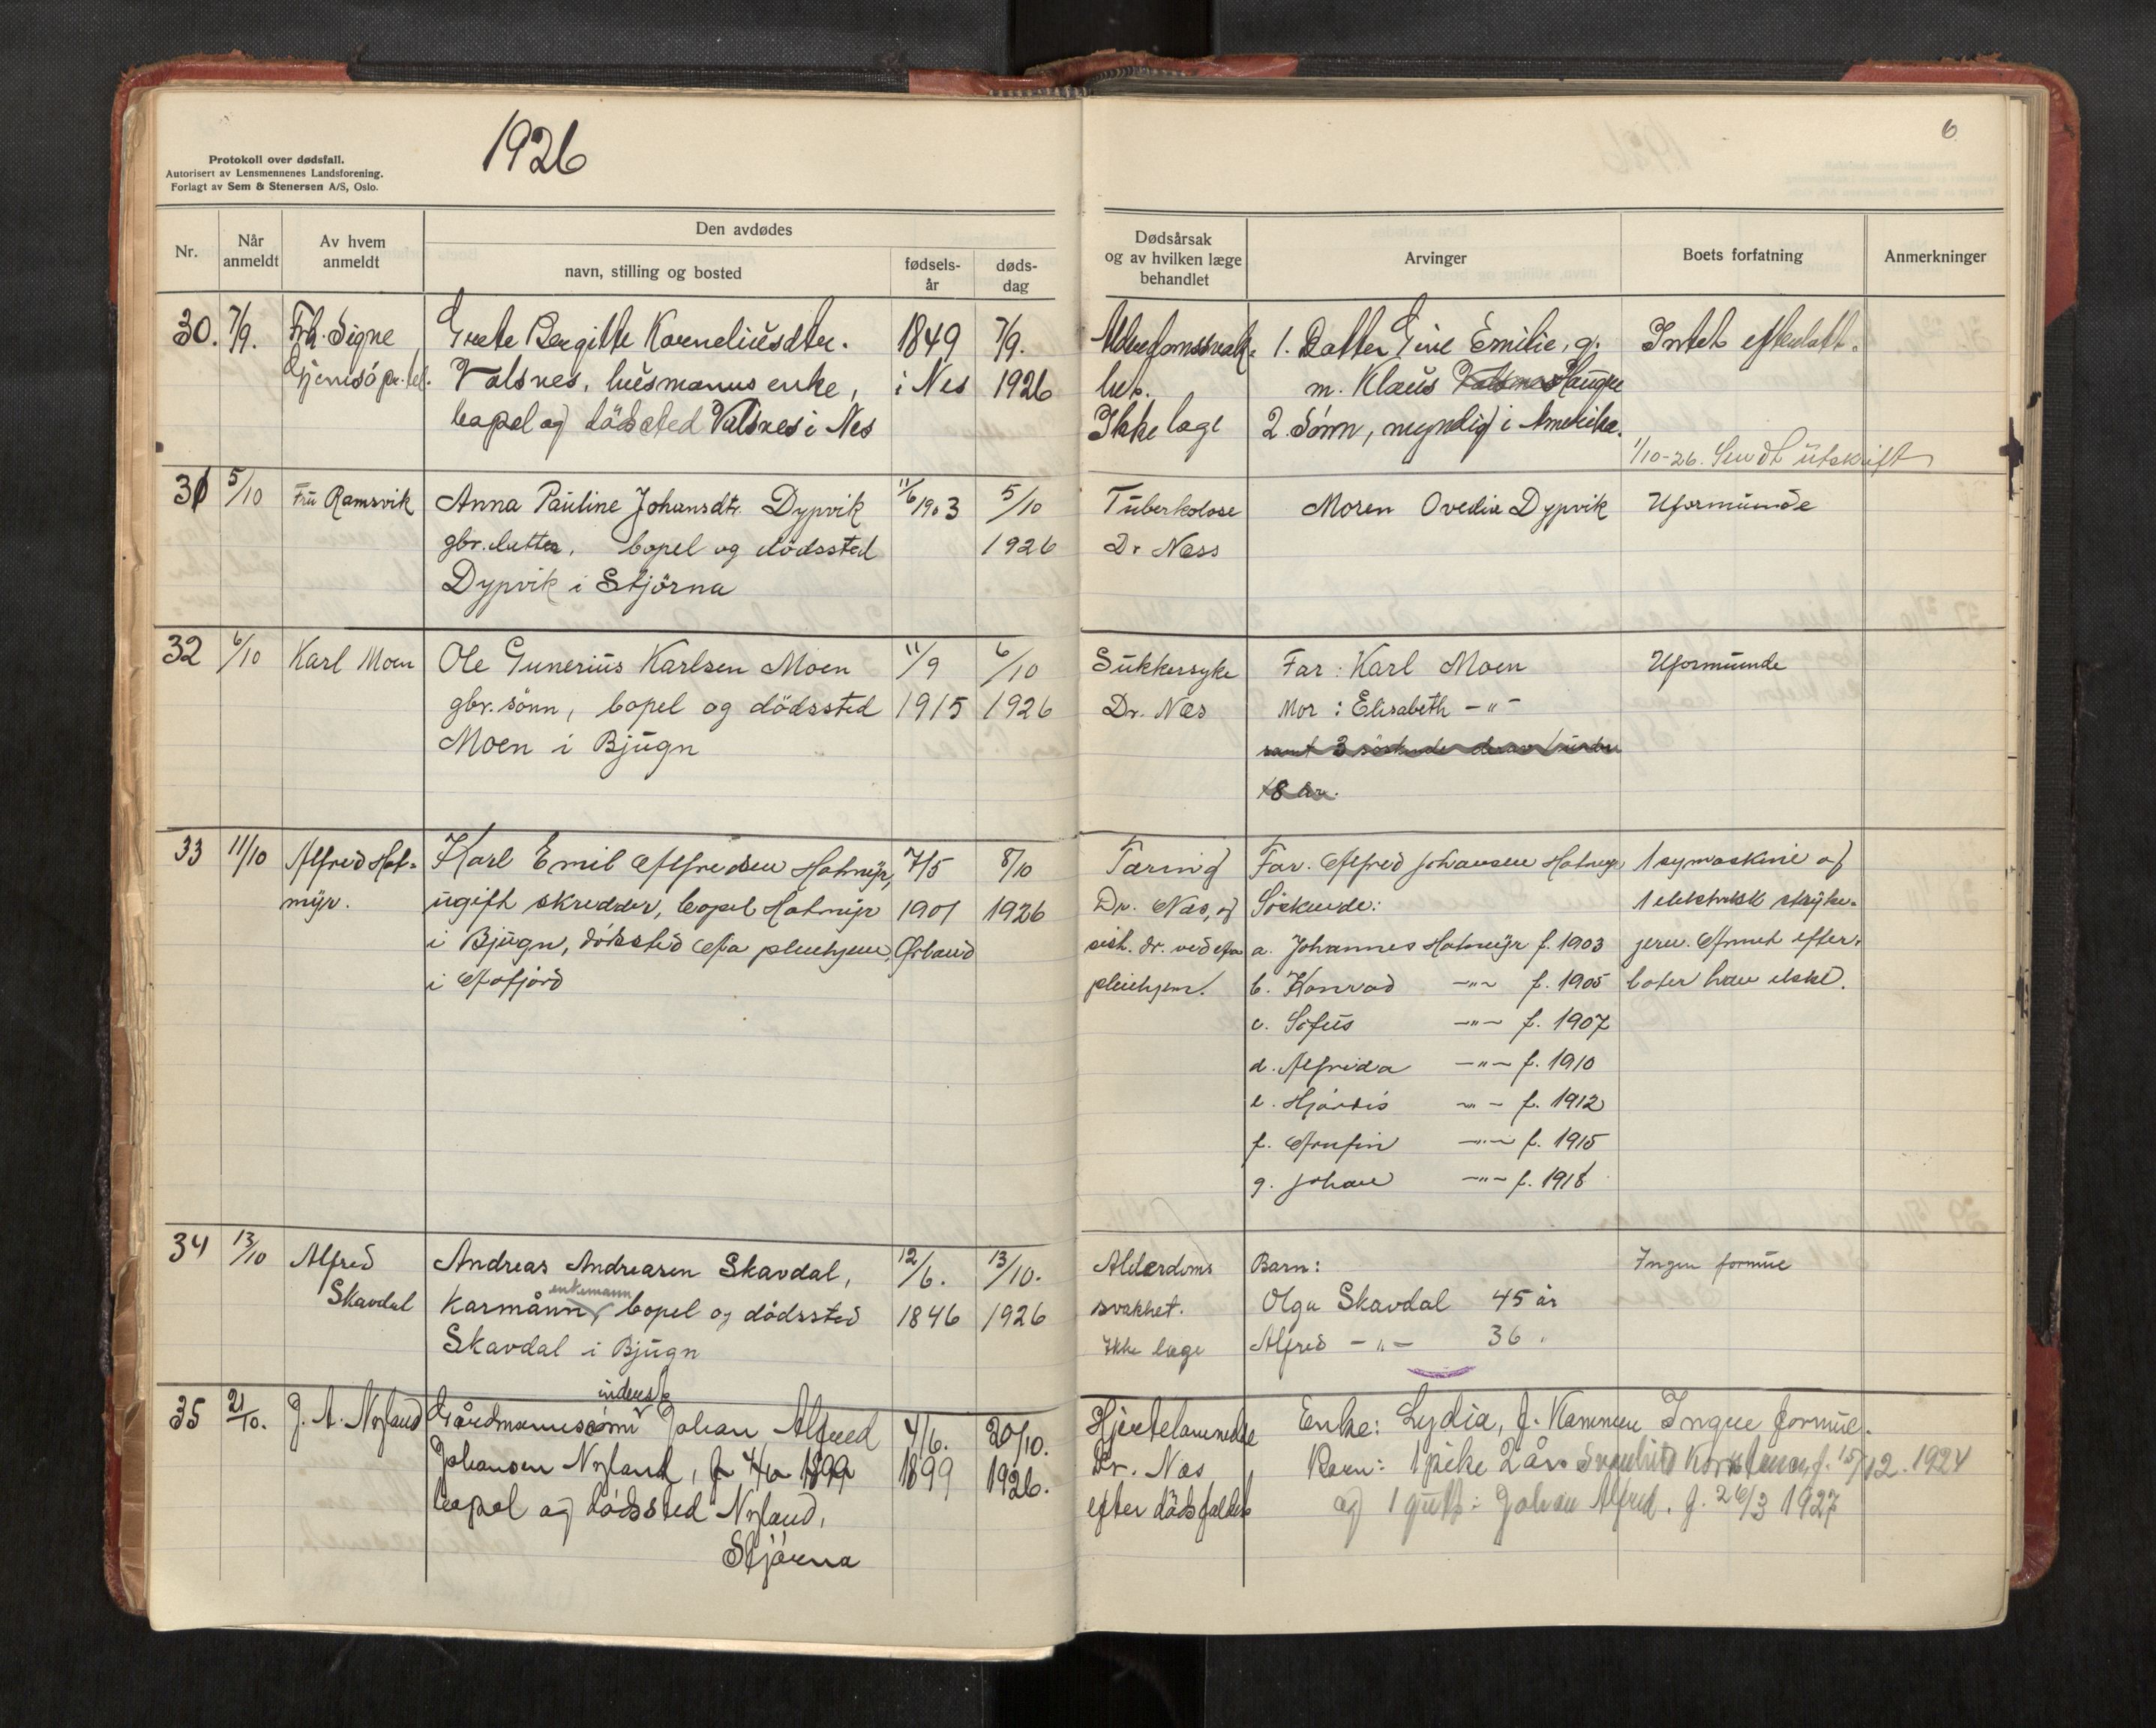 1926
6
Protokoll over dødsfall.
Autorisert av Lensmennenes Landsforening.
Forlagt av Sem & Stenersen A/S, Oslo.
Nr.
Når anmeldt
Av hvem anmeldt
Den avdødes
navn, stilling og bosted
fødsels-år
døds-dag
Dødsårsak og av hvilken læge behandlet
Arvinger
Boets forfatning
Anmerkninger
30. 7/9. Frk. Signe Grete Bergitte Korneliusdtr. 1849 7/9. 1. Datter Emilie, g. Intet efterlatt.
pr. tel. Valsnes, husmanns enke, i Nes 1926 m. Klaus Valsnes Haugen
bopel og dödssted Valsnes i Nes Ikke læge 2. Sönn, myndig i Amerika.
1/10-26. Sendt utskrift
31 5/10 Fru Ramsvik Anna Pauline Johansdtr. Dypvik 11/6 1903 5/10 Tuberkolose Moren Ovedia Dypvik Uformuende
gbr.datter, bopel og dödssted 1926 Dr Næss
Dypvik i Stjörna
32 6/10 Karl Moen Ole Gunerius Karlsen Moen 11/9 6/10 Sukkersyke Far: Karl Moen Uformuende
gbr.sönn, bopel og dödssted 1915 1926 Dr. Næs Mor: Elisabeth -"-
Moen i Bjugn samt 3 söskende derav 1 under
18 år.
33 11/10 Alfred Hot- Karl Emil Alfredsen Hotmyr, 7/5 8/10 Tæring Far. Alfred Johansen Hotmyr 1 symaskine og
myr. ugift skredder, bopel Hotmyr 1901 1926 Dr. Næs, og Söskende: 1 elektrisk stryke-
i Bjugn, dödssted Aa pleiehjem, Ørland sist. dr. ved Aa a. Johannes Hotmyr f. 1903 jern. Annet efter-
i Aafjord pleiehjem. b. Konrad -"- f. 1905 later han ikke.
c. Sofus -"- f. 1907
d. Alfrida -"- f. 1910
e. Hjördis -"- f. 1912
f. Arnfin -"- f. 1915
g. Johan -"- f. 1918
34 13/10 Alfred Andreas Andreasen Skavdal, 12/6. 13/10. Alderdoms Barn: Ingen formue
enkemann
Skavdal Karmånn, bopel og dödssted 1846 1926 svakhet. Olga Skavdal 45 år
Skavdal i Bjugn Ikke læge Alfred -"- 36 "
inderst
35 21/10. J. A. Nyland Gårdmannssönn Johan Alfred 4/6. 20/10. Hjertelammelse Enke: Lydia, f. Ingen formue.
Johansen Nyland, f. 4/6 1899 1899 1926. Dr. Næs Barn: 1 pike 2 år f. 15/12. 1924
bopel og dödssted Nyland, efter dödsfallet og 1 gutt: Johan Alfred. f. 26/3 1927
Stjörna